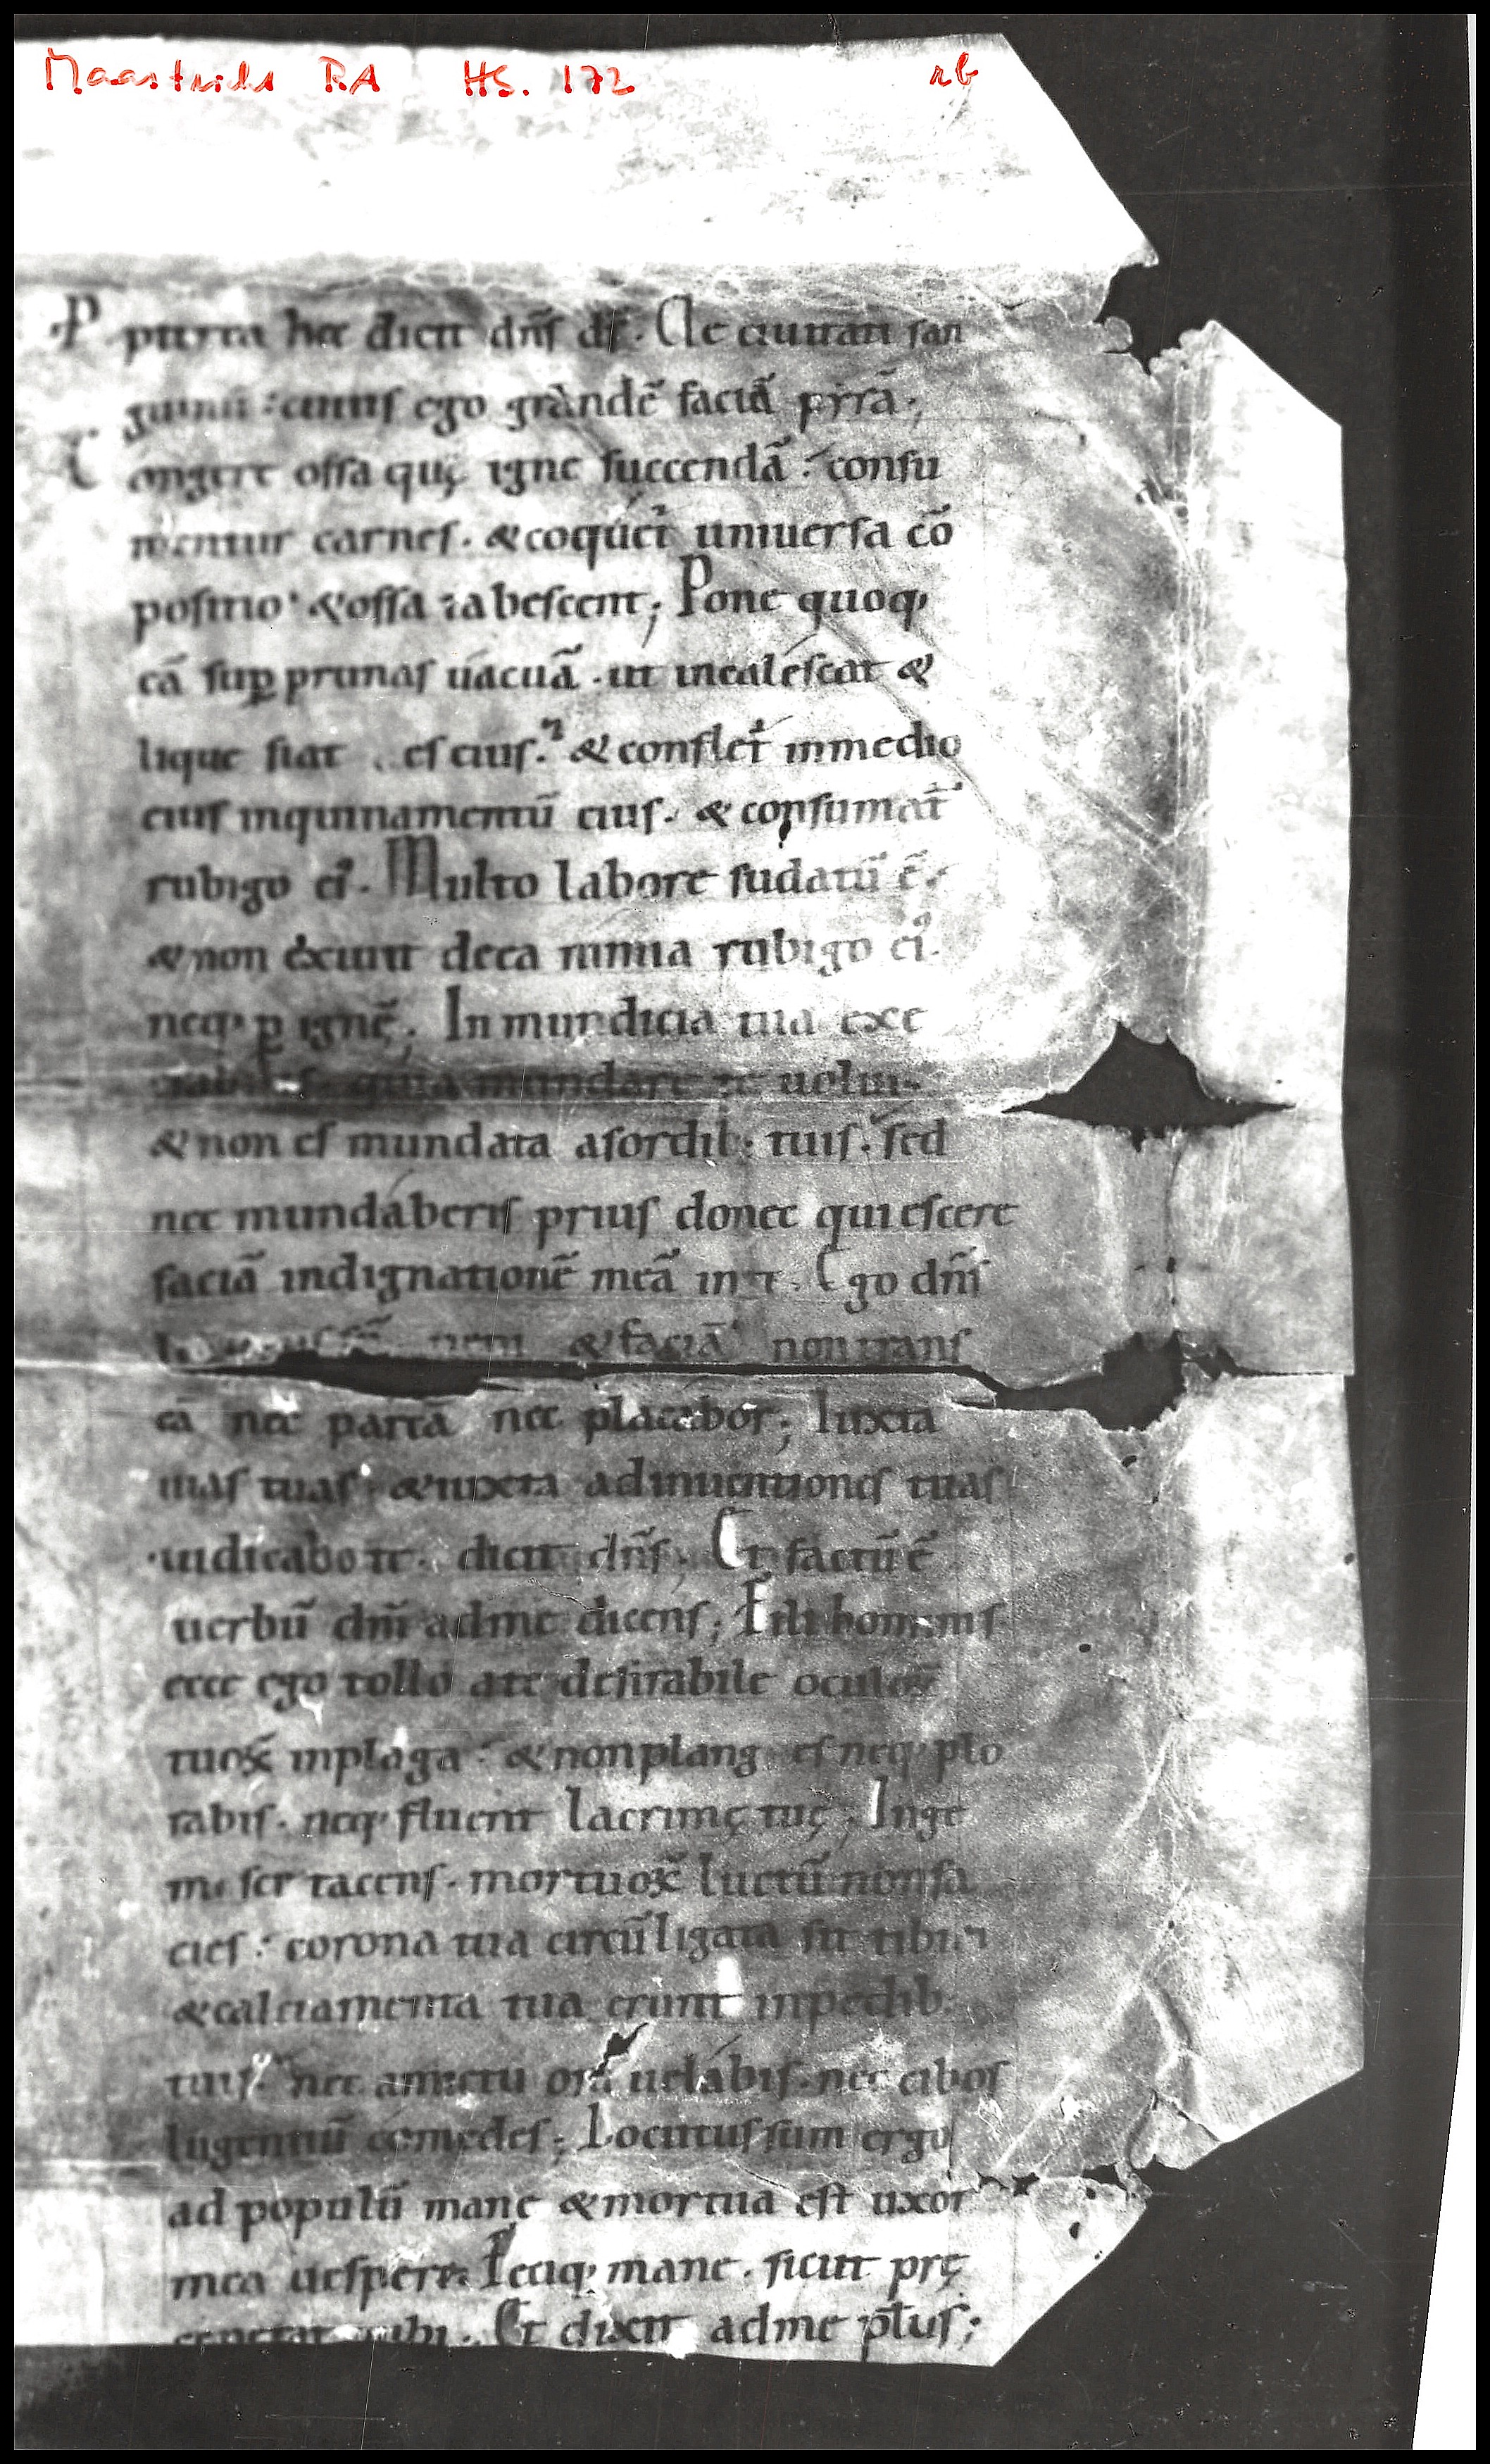 Maastricht RA HS. 172 rb
P pterea hec dicit dn̄s ds̄. Ve ciuitati san
guinū : cuius ego grandē faciā pyrā ;
C ongere ossa quę igne succendā : consu
mentur carnes . & coquet᷑ uniuersa cō
positio . & ossa tabescent ; Pone quoq;
eā suꝑ prunas uacuā . ut incalescat &
lique fiat es eius . & conflet᷑ inmedio
eius inquinamentū eius . & consumat᷑
rubigo ei᷒ . Multo labore sudatū ē .
& non exiuit deea nimia rubigo ei᷒ .
neq; ꝑ ignē ; Inmundicia tua exe
quia mundare te uolui .
& non es mundata asordib; tuis . sed
nec mundaberis prius donec quiescere
faciā indignationē meā in te . Ego dn̄s
& faciā non trans
eā nec parcā nec placabor ; Iuxta
uias tuas . & iuxta adinuentiones tuas
iudicabo te . dicit dn̄s ; Et factū ē
uerbū dn̄i adme dicens ; Fili hominis
ecce ego tollo ate desirabile oculoꝝ
tuoꝝ inplaga : & nonplang es neq; plo
rabis . neq; fluent lacrimę tuę ; Inge
misce tacens . mortuoꝝ luctū nonfa
cies : corona tua circūligata sit tibi .
& calciamenta tua erunt inpedib;
tuis . nec amictu ora uelabis . nec cibos
lugentiū comedes ; Locutus sum ergo
ad populū mane & mortua est uxor
mea uespere . Feciq; mane . sicut prę
ceperat mihi . Et dixit adme pl̄us ;